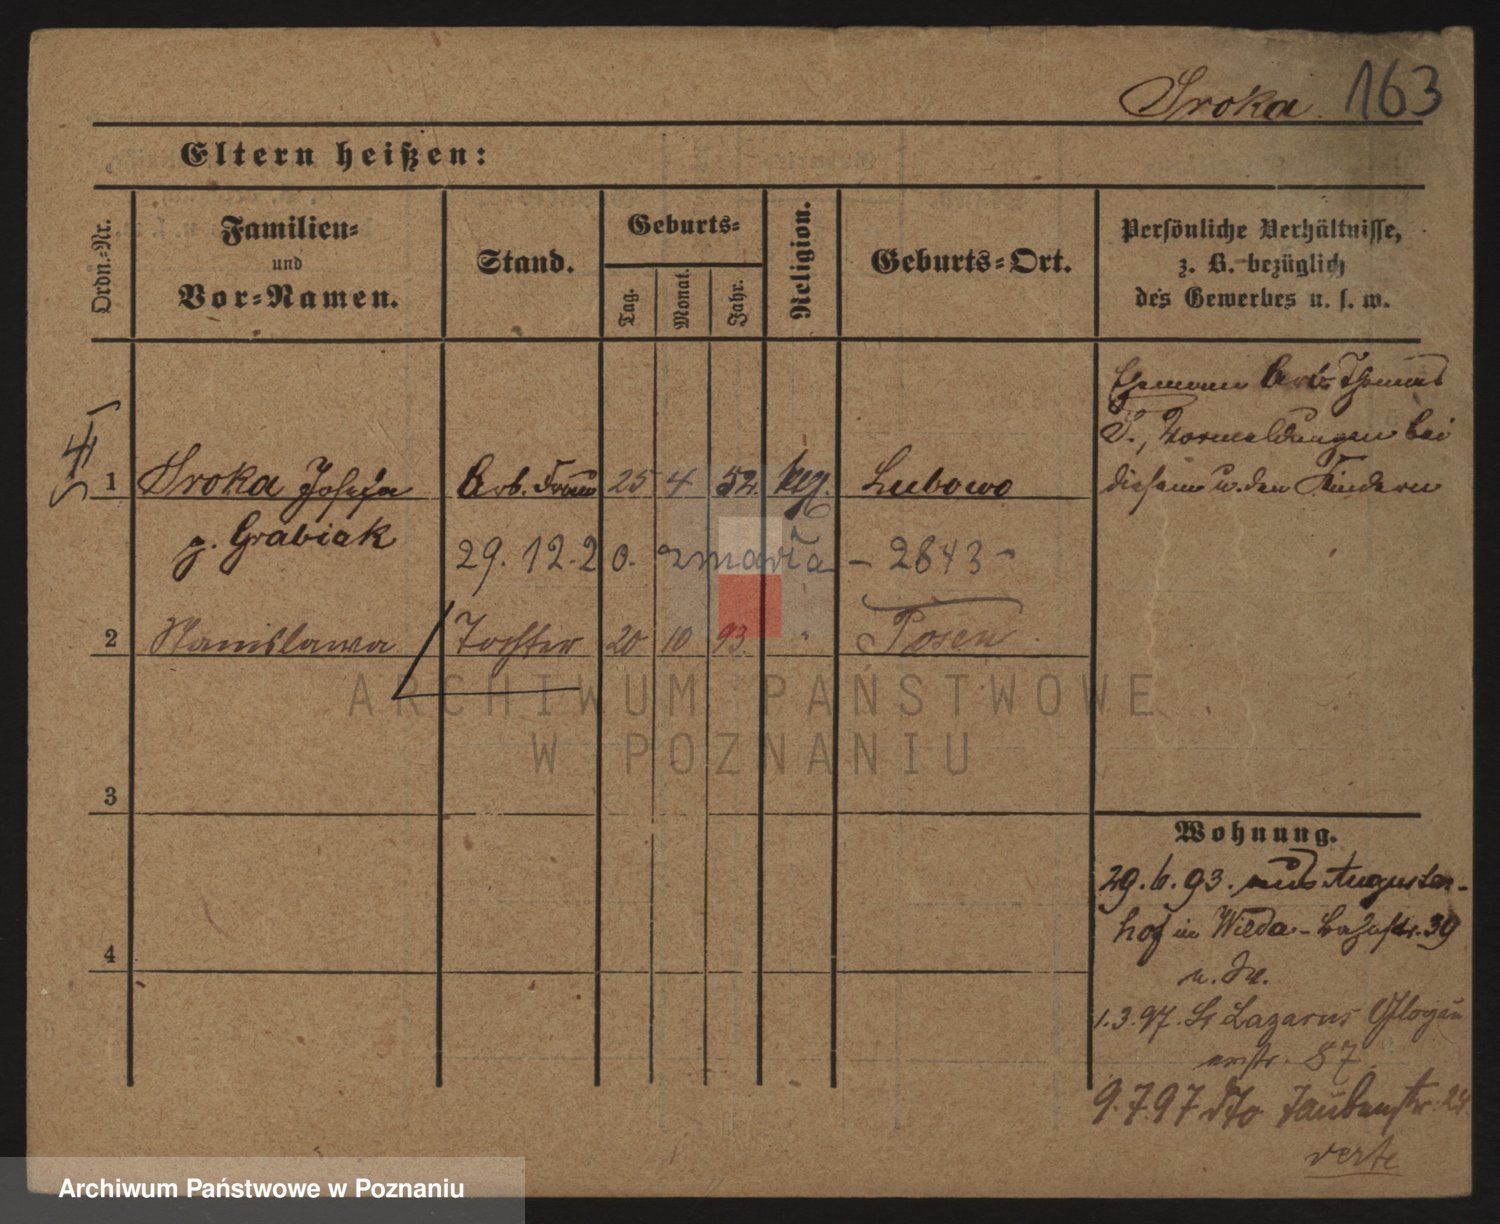 Sroka. 163
Eltern heißen:
Ordn.-Nr.
Familien-
und
Vor-Namen.
Stand.
Geburts-
Tag.
Monat.
Jahr.
Religion.
Geburts-Ort.
Persönliche Verhältnisse,
z. B. bezüglich
des Gewerbes u. s. w.
Ehemann Arb. Thomas
S., Vormeldungen bei
diesem u. den Kindern
1 Sroka Josefa Arb. Frau 25 4 52. Lubowo
g. Grabiak
29.12.20. zmarła - 2843 -
2 Stanislawa Tochter 20 10 93 " Posen
ARCHIWUM PAŃSTWOWE
W POZNANIU
3
4
Wohnung.
29.6.93. aus Augusten-
hof in Wilda - Bahnstr. 39
1.3.97. St Lazarus Glogau
erstr. 87.
9.7.97 dto Taubenstr. 24
verte
Archiwum Państwowe w Poznaniu